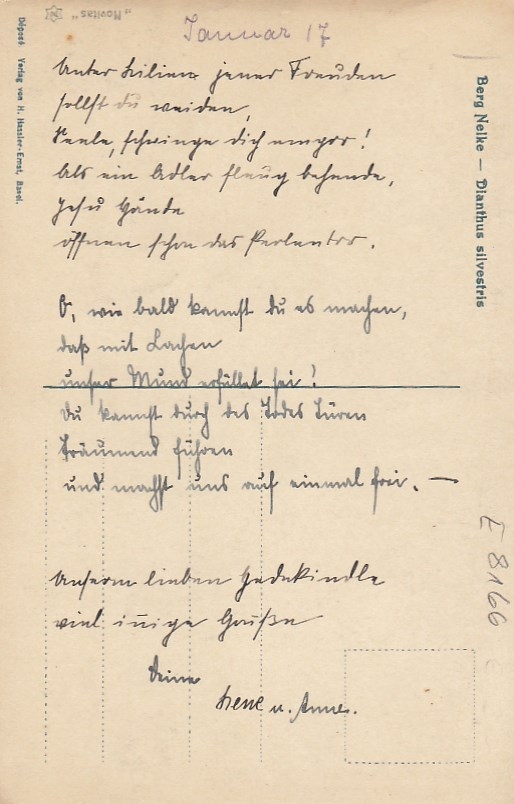 "Novitas"
Januar 17
Unter Lilien jener Freuden
sollst du weiden,
Seele, schwinge dich empor!
Als ein Adler fleug behende,
Jesu Hände
öffnen schon das Perlentor.
O, wie bald kannst du es machen,
daß mit Lachen
unser Mund erfüllet sei!
Du kannst durch des Todes Türen
träumend führen
und machst uns auf einmal frei. —
Unserm lieben
viel iñige Grüße
Deine
u. Anne.
Déposé Verlag von H. Hassler-Ernst, Basel.
Berg Nelke — Dianthus silvestris
E 8166